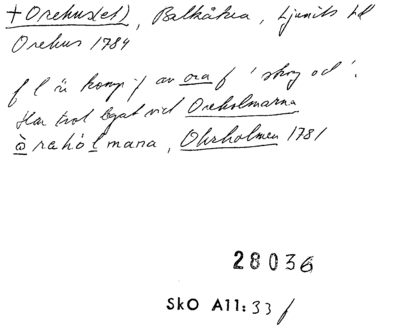 +Orehus(et), Balkåkra, Ljunits hd
Orehus 1784
f l är komp f av ora f 'skog od'.
Har trol legat vid Oreholmarna
òrahòlmana, Ohrholmen 1781
28036
SkO A11:33 f